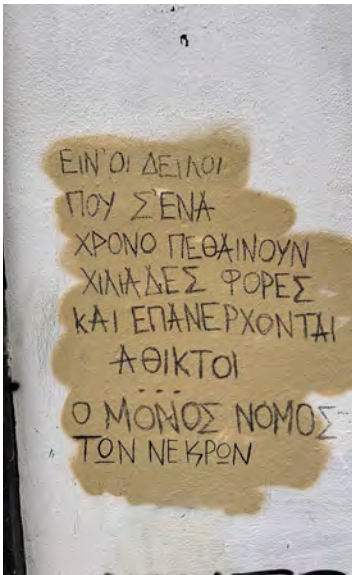 ΕΙΝ' ΟΙ ΔΕΙΛΟΙ
ΠΟΥ Σ'ΕΝΑ
ΧΡΟΝΟ ΠΕΘΑΙΝΟΥΝ
ΧΙΛΙΑΔΕΣ ΦΟΡΕΣ
ΚΑΙ ΕΠΑΝΕΡΧΟΝΤΑΙ
ΑΘΙΚΤΟΙ
...
Ο ΜΟΝΟΣ ΝΟΜΟΣ
ΤΩΝ ΝΕΚΡΩΝ